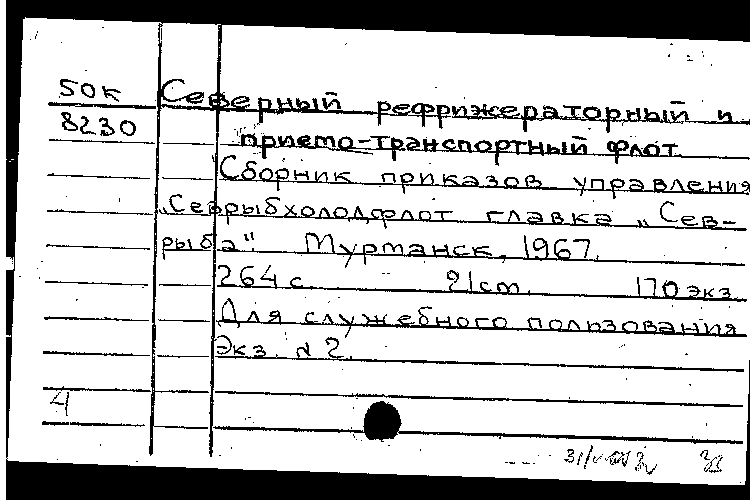 50к Северный рефрижераторный и
8230 приемо-транспортный флот
Сборник приказов управления
„Севрыбхолодфлот главка „Сев-
рыба". Мурманск, 1967.
264 с. 21 cm. 170 экз.
Для служебного пользования
Экз. № 2.
4